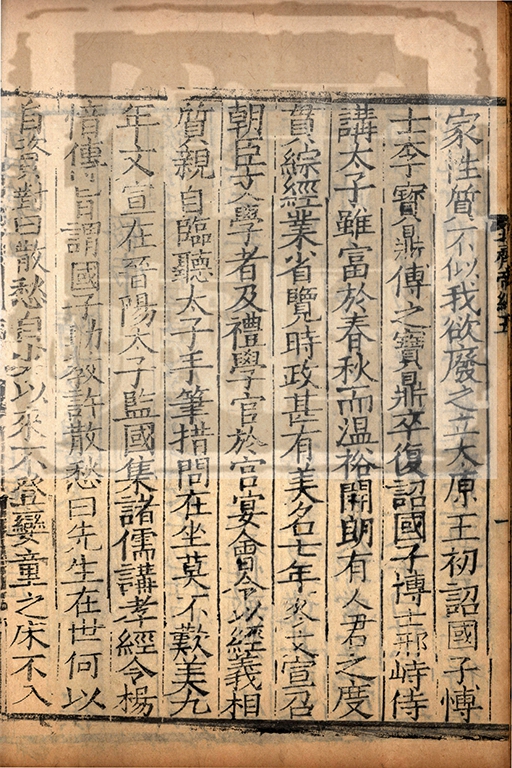 家性質不似我欲廢之立太原王初詔國子愽
士李寳鼎傅之寳鼎卒復詔國子博士邢峙侍
講太子雖富於春秋而温裕開朗有人君之度
貫綜經業省覽時政甚有美名七年冬文宣召
朝臣文學者及禮學官於宫宴會令以經義相
質親自臨聽太子手筆措問在坐莫不歎美九
年文宣在晋陽太子監國集諸儒講孝經令楊
愔傳旨謂國子助教許散愁曰先生在世何以
自資對曰散愁自少以來不登孌童之床不入